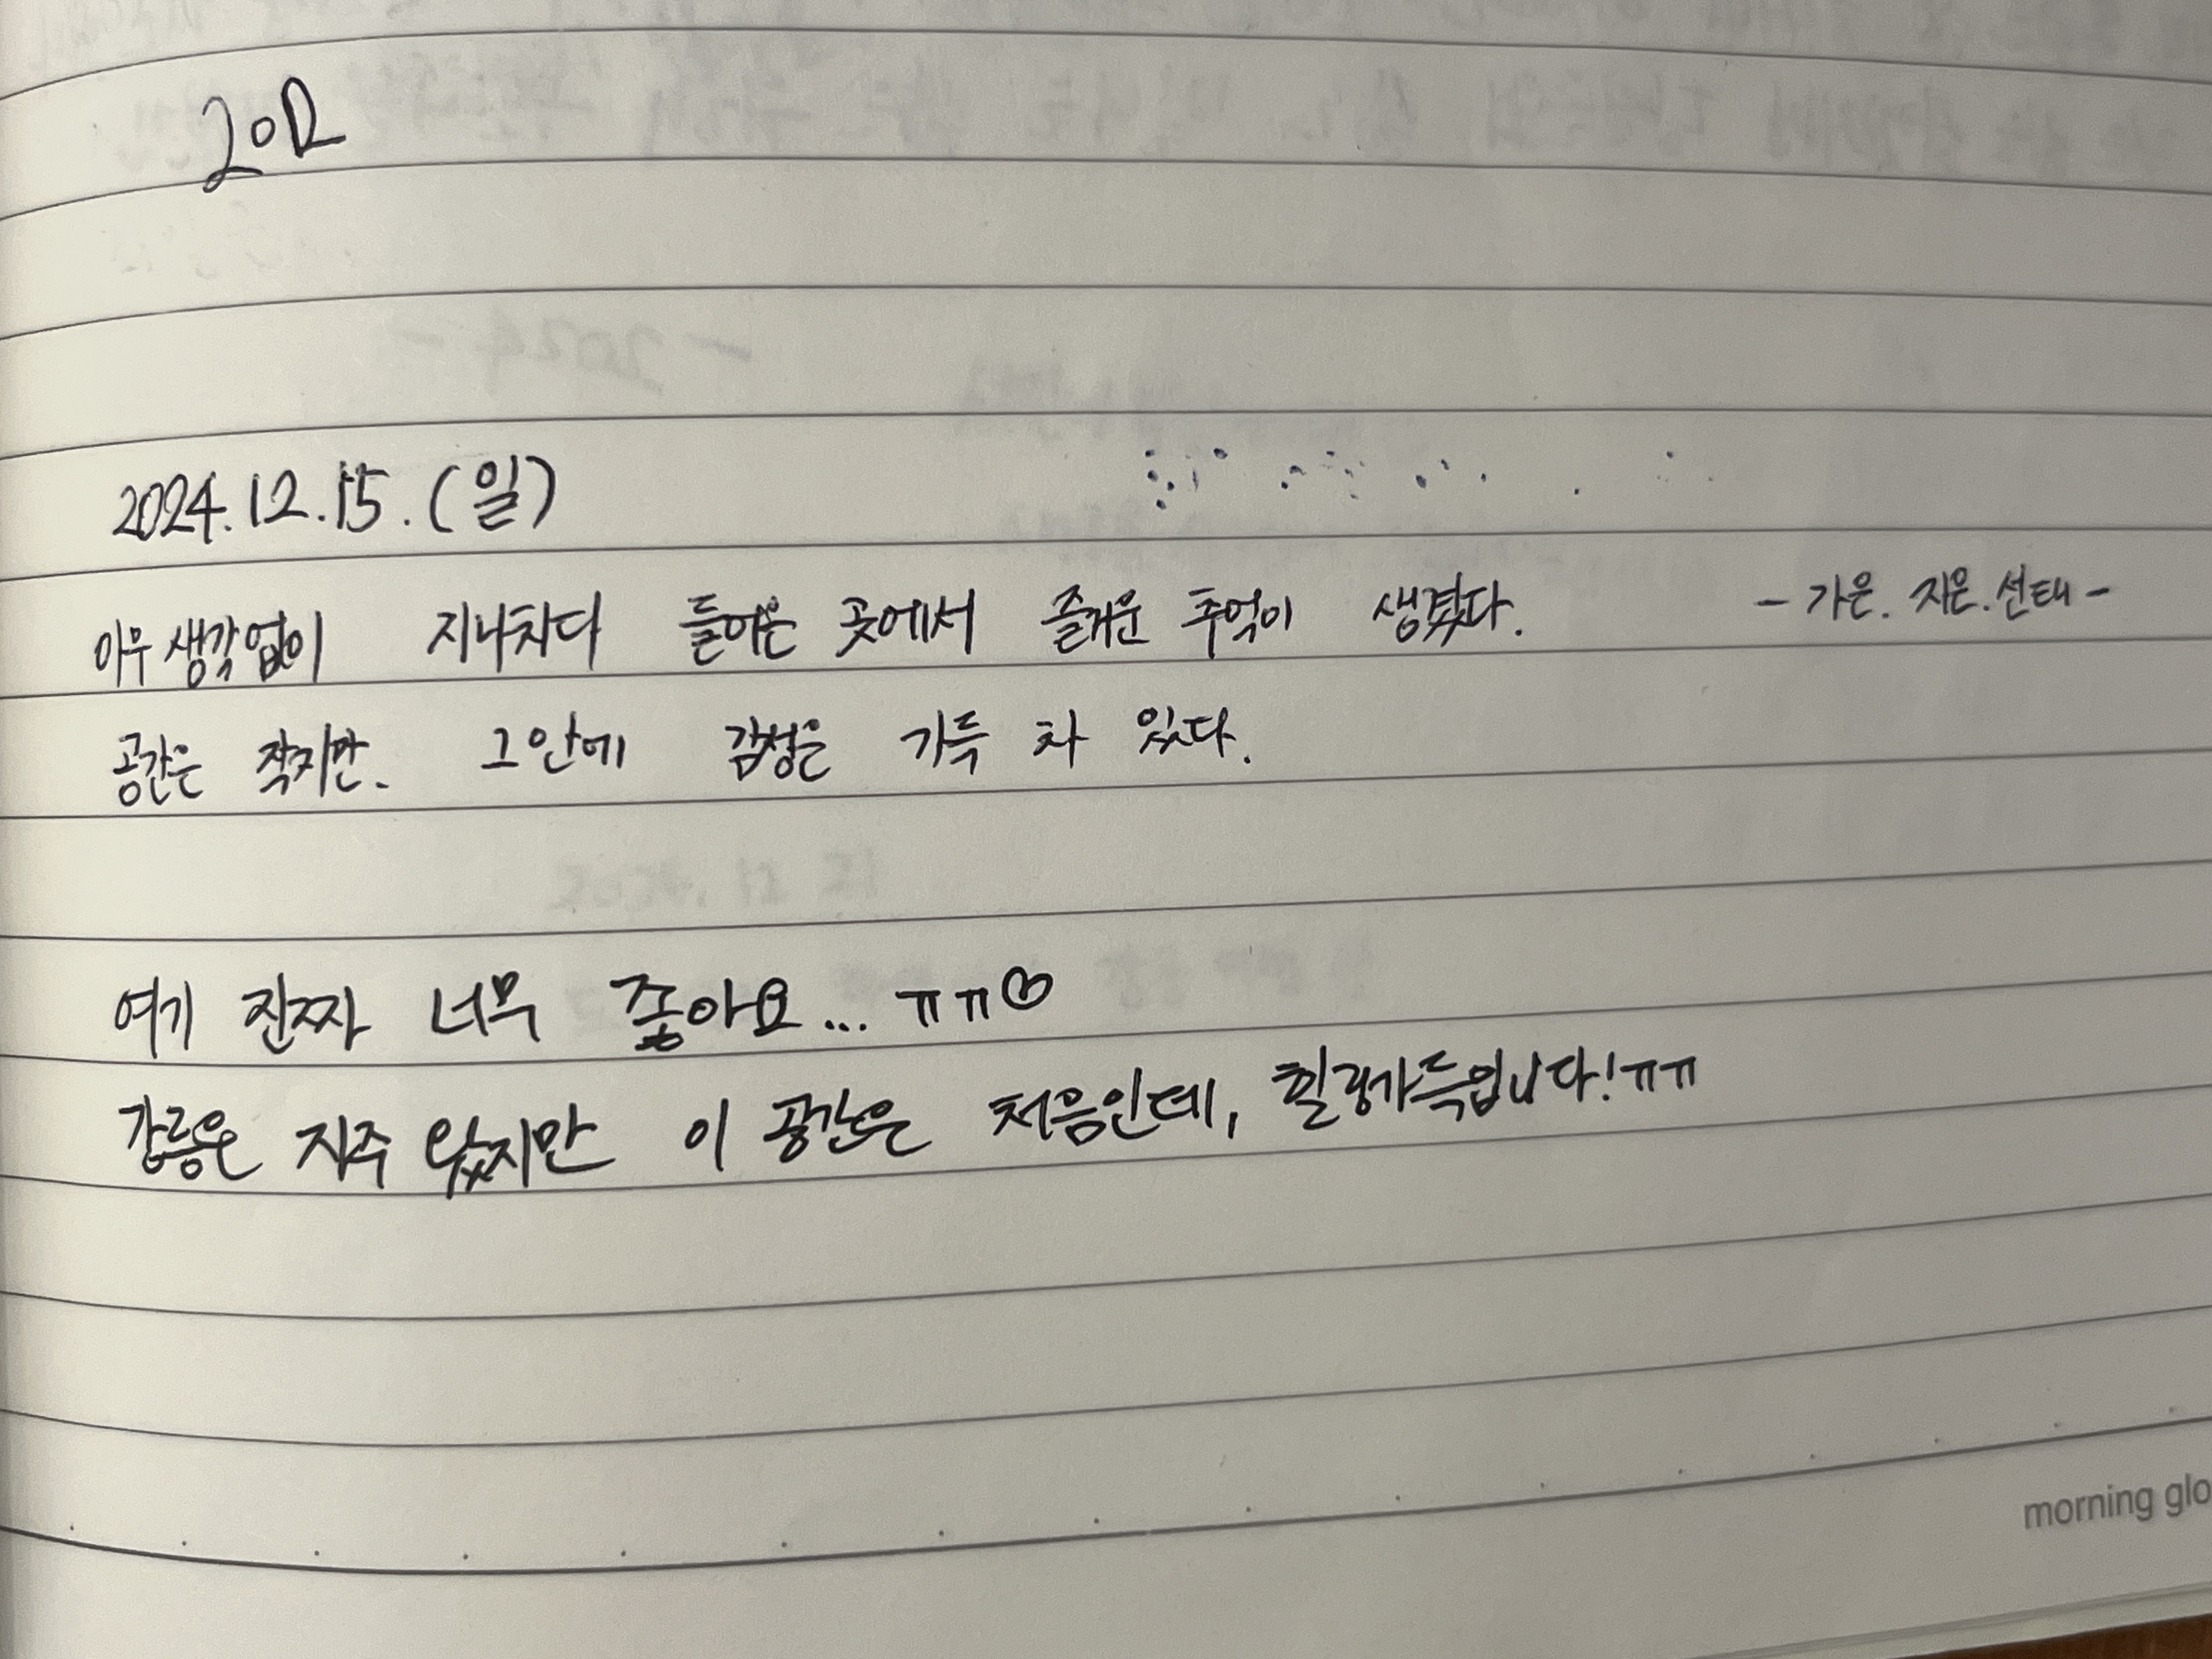 2024.12.15.(일)
아무 생각 없이 지나치다 들어온 곳에서 즐거운 추억이 생겼다. - 가은. 지은. 선태 -
공간은 작지만. 그 안에 감성은 가득 차 있다.
여기 진짜 너무 좋아요... ㅠㅠ♡
강릉은 자주 왔지만 이 공간은 처음인데, 힐링가득입니다!ㅠㅠ
morning glo